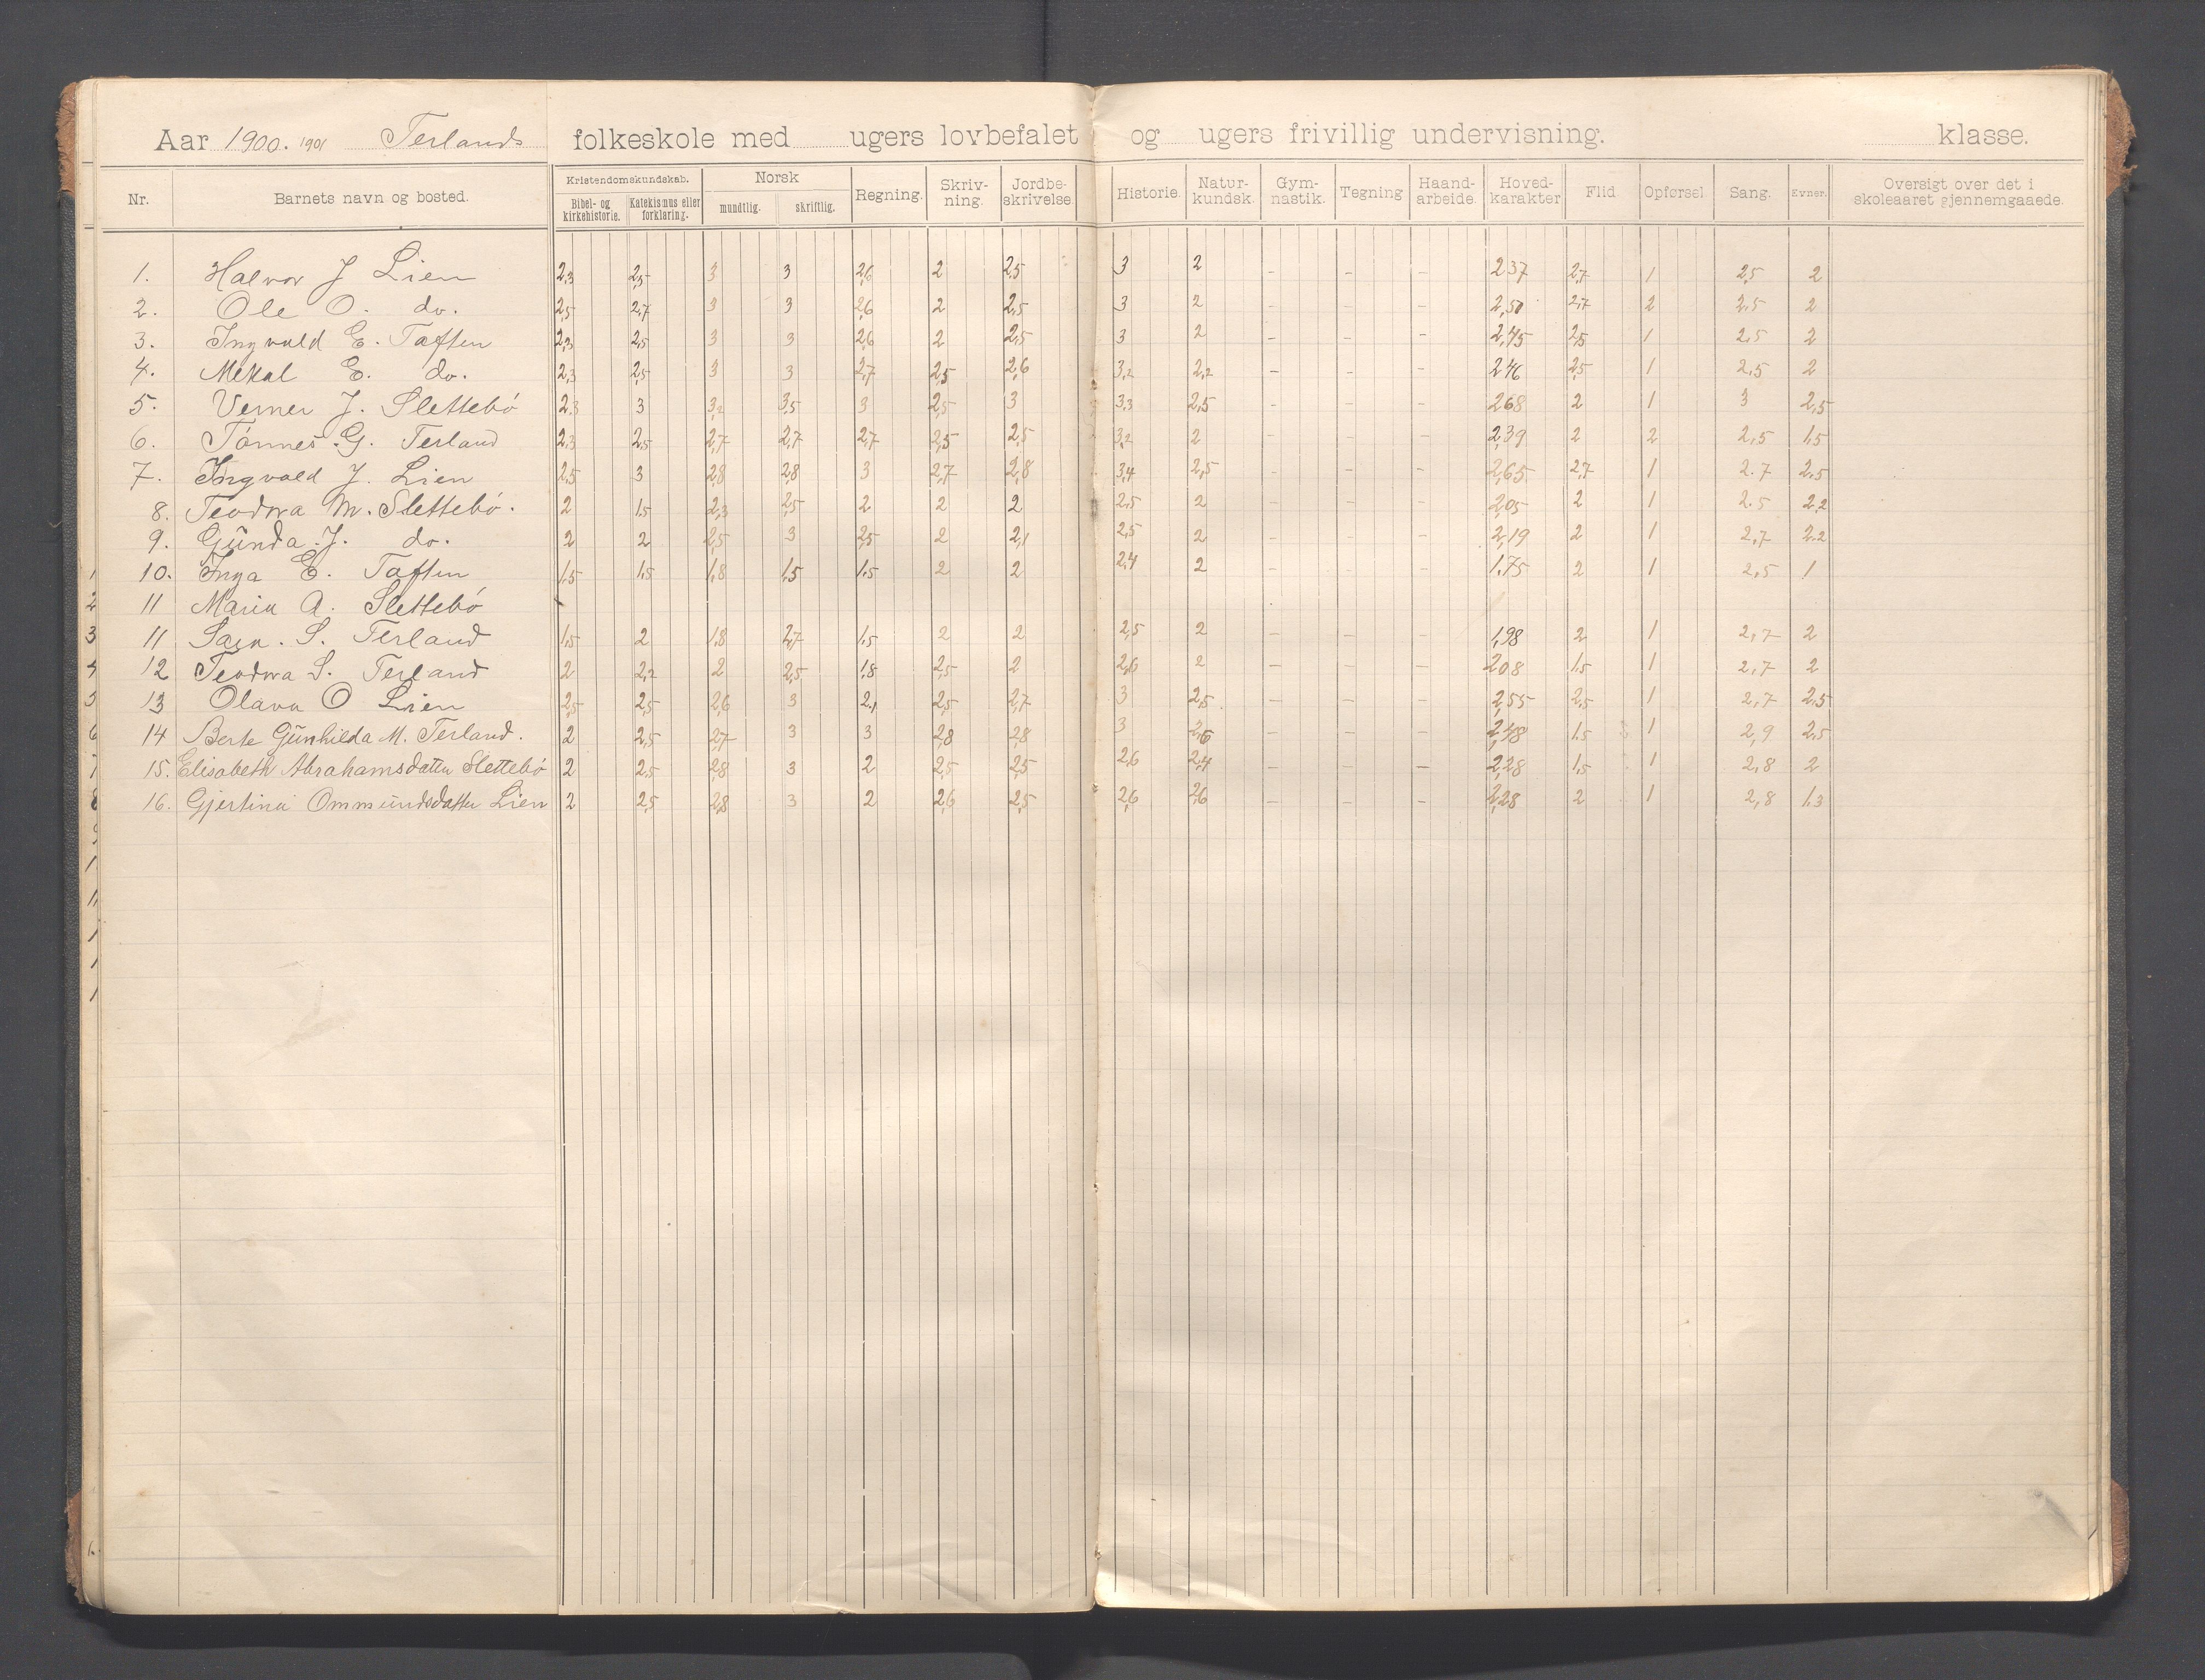 Aar 1900. 1901 Terlands folkeskole med ugers lovbefalet og ugers frivillig undervisning. klasse.
Nr. Barnets navn og bosted. Kristendomskundskab. Bibel- og kirkehistorie. Katekismus eller forklaring. Norsk mundtlig. skriftlig. Regning. Skriv-ning. Jordbe-skrivelse. Historie. Natur-kundsk. Gym-nastik. Tegning Haand-arbeide. Hoved-karakter Flid Opførsel Sang. Evner. Oversigt over det i skoleaaret gjennemgaaede.
1. Halvor J Lien 2,3 2,5 3 3 2,6 2 2,5 3 2 - - - 2,37 2,7 1 2,5 2
2. Ole O. do. 2,5 2,7 3 3 2,6 2 2,5 3 2 - - - 2,50 2,7 2 2,5 2
3. Ingvald E. Taften 2,3 2,5 3 3 2,6 2 2,5 3 2 - - - 2,45 2,5 1 2,5 2
4. Mikal E. do. 2,3 2,5 3 3 2,7 2,5 2,6 3,2 2,2 - - - 2,46 2,5 1 2,5 2
5. Verner J. Slettebó 2,3 3 3,2 3,5 3 2,5 3 3,3 2,5 - - - 2,68 2 1 3 2,5
6. Tönnes G. Terland 2,3 2,5 2,7 2,7 2,7 2,5 2,5 3,2 2 - - - 2,39 2 2 2,5 1,5
7. Ingvald J. Lien 2,5 3 2,8 2,8 3 2,7 2,8 3,4 2,5 - - - 2,65 2,7 1 2.7 2,5
8. Teodora M. Slettebó. 2 1,5 2,3 2,5 2 2 2 2,5 2 - - - 2,05 2 1 2.5 2,2
9. Gŭnda J. do. 2 2 2,5 3 2,5 2 2,1 2,5 2 - - - 2,19 2 1 2,7 2.2
10. Inga E. Taften 1,5 1,5 1,8 1,5 1,5 2 2 2,4 2 - - - 1.75 2 1 2,5 1
11 Maria A. Slettebó
11 S. Terland 1,5 2 1,8 2,7 1,5 2 2 2,5 2 - - - 1,98 2 1 2,7 2
12 Teodora S. Terland 2 2,2 2 2,5 1,8 2,5 2 2,6 2 - - - 2,08 1,5 1 2,7 2
13 Olava O Lien 2,5 2,5 2,6 3 2,1 2,5 2,7 3 2,5 - - - 2,55 2,5 1 2,7 2,5
14 Berte Gŭnhilda M. Terland. 2 2,5 2,7 3 3 2,8 2,8 3 2,6 - - - 2,48 1,5 1 2,9 2,5
15. Elisabeth Abrahamsdatter Slettebó 2 2,5 2,8 3 2 2,5 2,5 2,6 2,4 - - - 2,28 1,5 1 2,8 2
16. Gjertina Ommŭndsdatter Lien 2 2,5 2,8 3 2 2,6 2,5 2,6 2,6 - - - 2,28 2 1 2,8 1.3